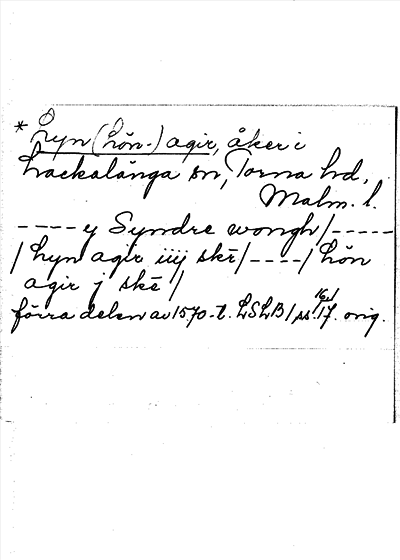 * Hyn (hön-) agir, åker i
Lackalänga sn, Torna hd,
Malm. l.
---- y Syndre wongh/-----
/ hyn agir iiij skē/----/ hön
agir j skē /
förra delen av 1570-t. LSLB/ss 16, 17. orig.